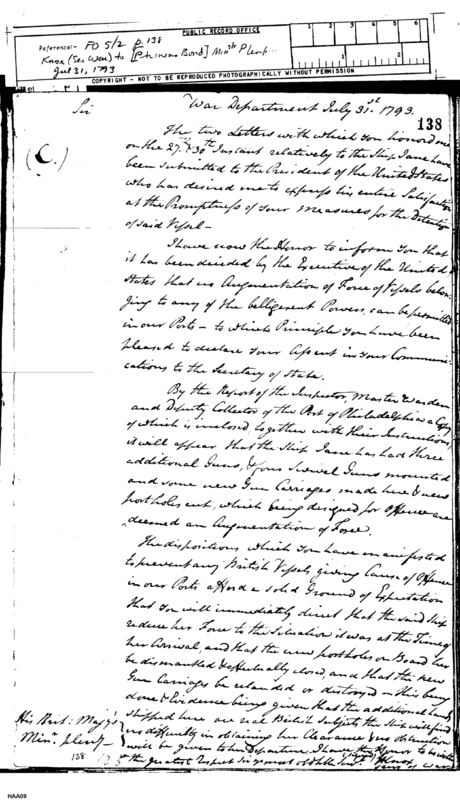 PUBLIC RECORD OFFICE
Reference:- FO 5/2 p. 138
Knox (Sec War) to [Phineas Bond] Minstr Plenip..
Jul 31, 1793
COPYRIGHT - NOT TO BE REPRODUCED PHOTOGRAPHICALLY WITHOUT PERMISSION
1 2 3 4 5 6
1 2
War Department July 31st 1793.
138
Sir
(C.)
The two Letters with which you honored me
on the 27th & 30th Instant relatively to the Ship Jane have
been submitted to the President of the United States
who has desired me to express his entire Satisfaction
at the Promptness of your Measures for the Detention
of said Vessel —
I have now the Honor to inform you that
it has been decided by the Executive of the United
States that no Augmentation of Force of Vessels belon-
ging to any of the belligerent Powers, can be permitted
in our Ports — to which Principle you have been
pleased to declare your Assent in your Communi-
cations to the Secretary of State.
By the Report of the Inspector, Master Warden
and Deputy Collector of the Port of Philadelphia a Copy
of which is inclosed together with their Instructions,
it will appear that the Ship Jane has had three
additional Guns, & four Swivel Guns mounted
and some new Gun Carriages made here & new
portholes cut, which being designed for Offence are
deemed an Augmentation of Force.
The dispositions which you have manifested
to prevent any British Vessels giving Cause of Offence
in our Ports afford a solid Ground of Expectation
that you will immediately direct that the said Ship
reduce her Force to the Situation it was at the Time of
her Arrival, and that the new portholes on Board her
be dismantled & effectually closed, and that the new
Gun Carriages be relanded or destroyed — this being
done & Evidence being given that the additional hands
shipped here are all British Subjects the Ship will find
no difficulty in obtaining her Clearance & no obstruction
will be given to her Departure. I have the Honor to be with
the greatest respect Sir your most obedt Servt
(signed) H Knox
Secy of War
His Brit: Majy's
Minr. pleny —
138
HAA09